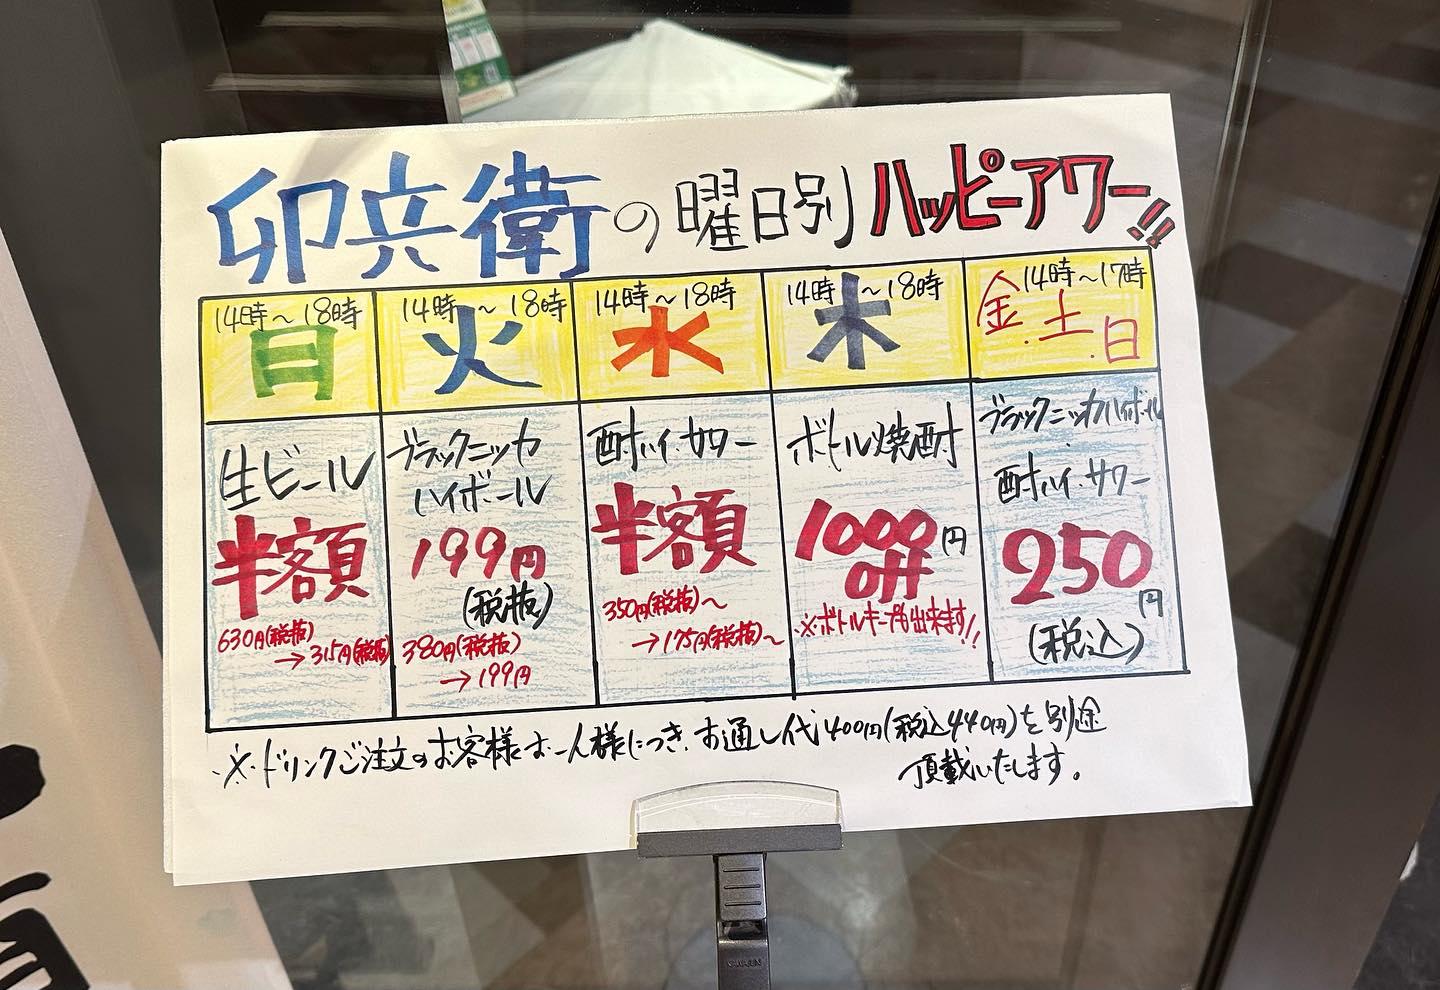 卯兵衛の曜日別ハッピーアワー!!
14時～18時
月
生ビール
半額
630円(税抜)
→315円(税抜)
14時～18時
火
ブラックニッカ
ハイボール
199円
(税抜)
380円(税抜)
→199円
14時～18時
水
酎ハイ・サワー
半額
350円(税抜)～
→175円(税抜)～
14時～18時
木
ボトル焼酎
1000円
off
※ボトルキープも出来ます!!
14時～17時
金・土・日
ブラックニッカハイボール
酎ハイ・サワー
250円
(税込)
※ドリンクご注文のお客様お一人様につき、お通し代400円(税込440円)を別途
頂戴いたします。